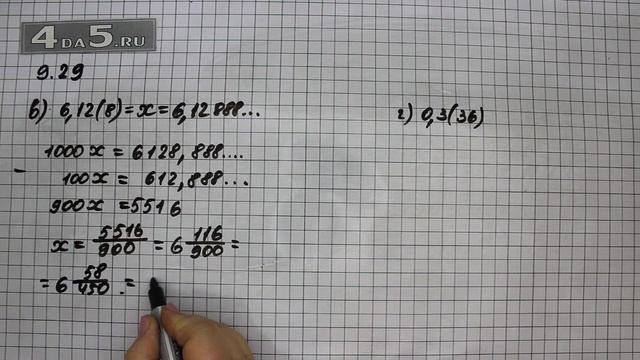 4DA5.RU
9.29
в) 6,12(8)=x=6,12888...
г) 0,3(36)
1000x = 6128,888....
- 100x = 612,888...
900x = 5516
x = 5516/900 = 6 116/900 =
= 6 58/450 =